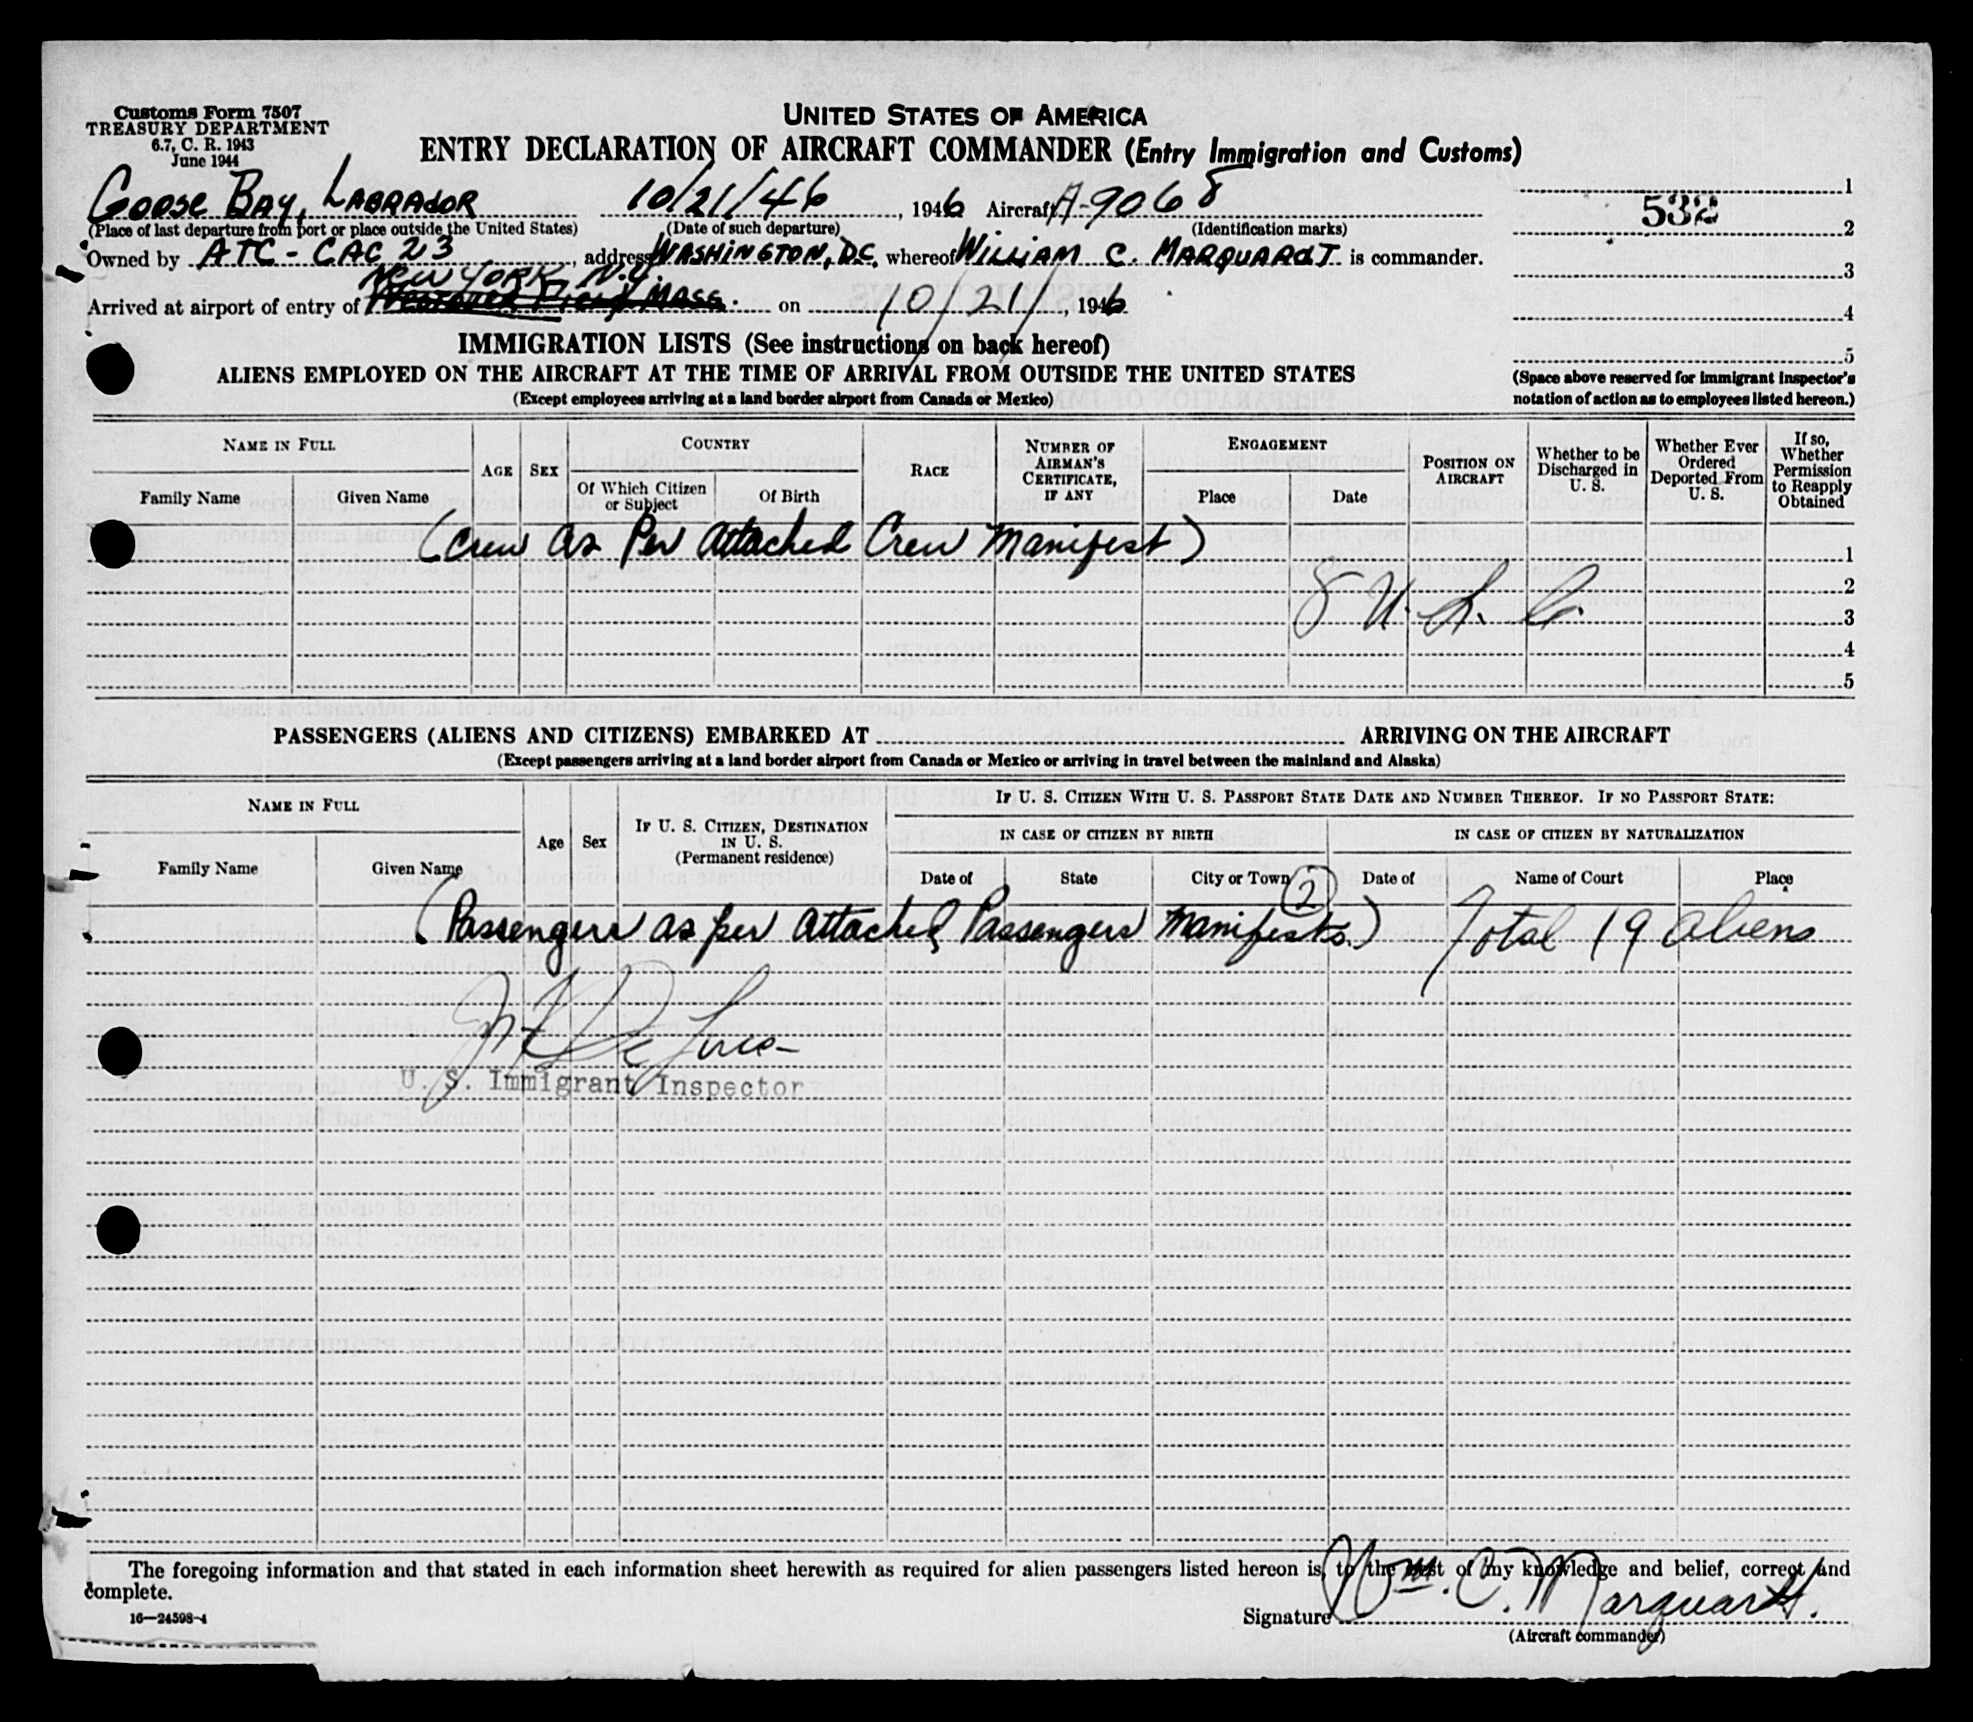 Customs Form 7507
TREASURY DEPARTMENT
6.7, C. R. 1943
June 1944
UNITED STATES OF AMERICA
ENTRY DECLARATION OF AIRCRAFT COMMANDER (Entry Immigration and Customs)
GOOSE BAY, LABRADOR 10/21/46, 1946 Aircraft A-9068
(Place of last departure from port or place outside the United States) (Date of such departure) (Identification marks)
Owned by ATC - CAC 23, address WASHINGTON, D.C., whereof WILLIAM C. MARQUARDT is commander.
NEW YORK, N.Y.
Arrived at airport of entry of Westover Field, Mass. on 10/21/, 1946
1
532
2
3
4
5
(Space above reserved for immigrant inspector's
notation of action as to employees listed hereon.)
IMMIGRATION LISTS (See instructions on back hereof)
ALIENS EMPLOYED ON THE AIRCRAFT AT THE TIME OF ARRIVAL FROM OUTSIDE THE UNITED STATES
(Except employees arriving at a land border airport from Canada or Mexico)
NAME IN FULL
Family Name
Given Name
AGE
SEX
COUNTRY
Of Which Citizen or Subject
Of Birth
RACE
NUMBER OF AIRMAN'S CERTIFICATE, IF ANY
ENGAGEMENT
Place
Date
POSITION ON AIRCRAFT
Whether to be Discharged in U. S.
Whether Ever Ordered Deported From U. S.
If so, Whether Permission to Reapply Obtained
(Crew as Per Attached Crew Manifest) 1
2
8 U.S.C. 3
4
5
PASSENGERS (ALIENS AND CITIZENS) EMBARKED AT ARRIVING ON THE AIRCRAFT
(Except passengers arriving at a land border airport from Canada or Mexico or arriving in travel between the mainland and Alaska)
NAME IN FULL
Family Name
Given Name
Age
Sex
IF U. S. CITIZEN, DESTINATION IN U. S.
(Permanent residence)
IF U. S. CITIZEN WITH U. S. PASSPORT STATE DATE AND NUMBER THEREOF. IF NO PASSPORT STATE:
IN CASE OF CITIZEN BY BIRTH
IN CASE OF CITIZEN BY NATURALIZATION
Date of
State
City or Town
Date of
Name of Court
Place
2
(Passengers as per attached Passengers Manifests.) Total 19 aliens
U. S. Immigrant Inspector
The foregoing information and that stated in each information sheet herewith as required for alien passengers listed hereon is, to the best of my knowledge and belief, correct and
complete.
16—24598-4
Signature Wm. C. Marquardt.
(Aircraft commander)